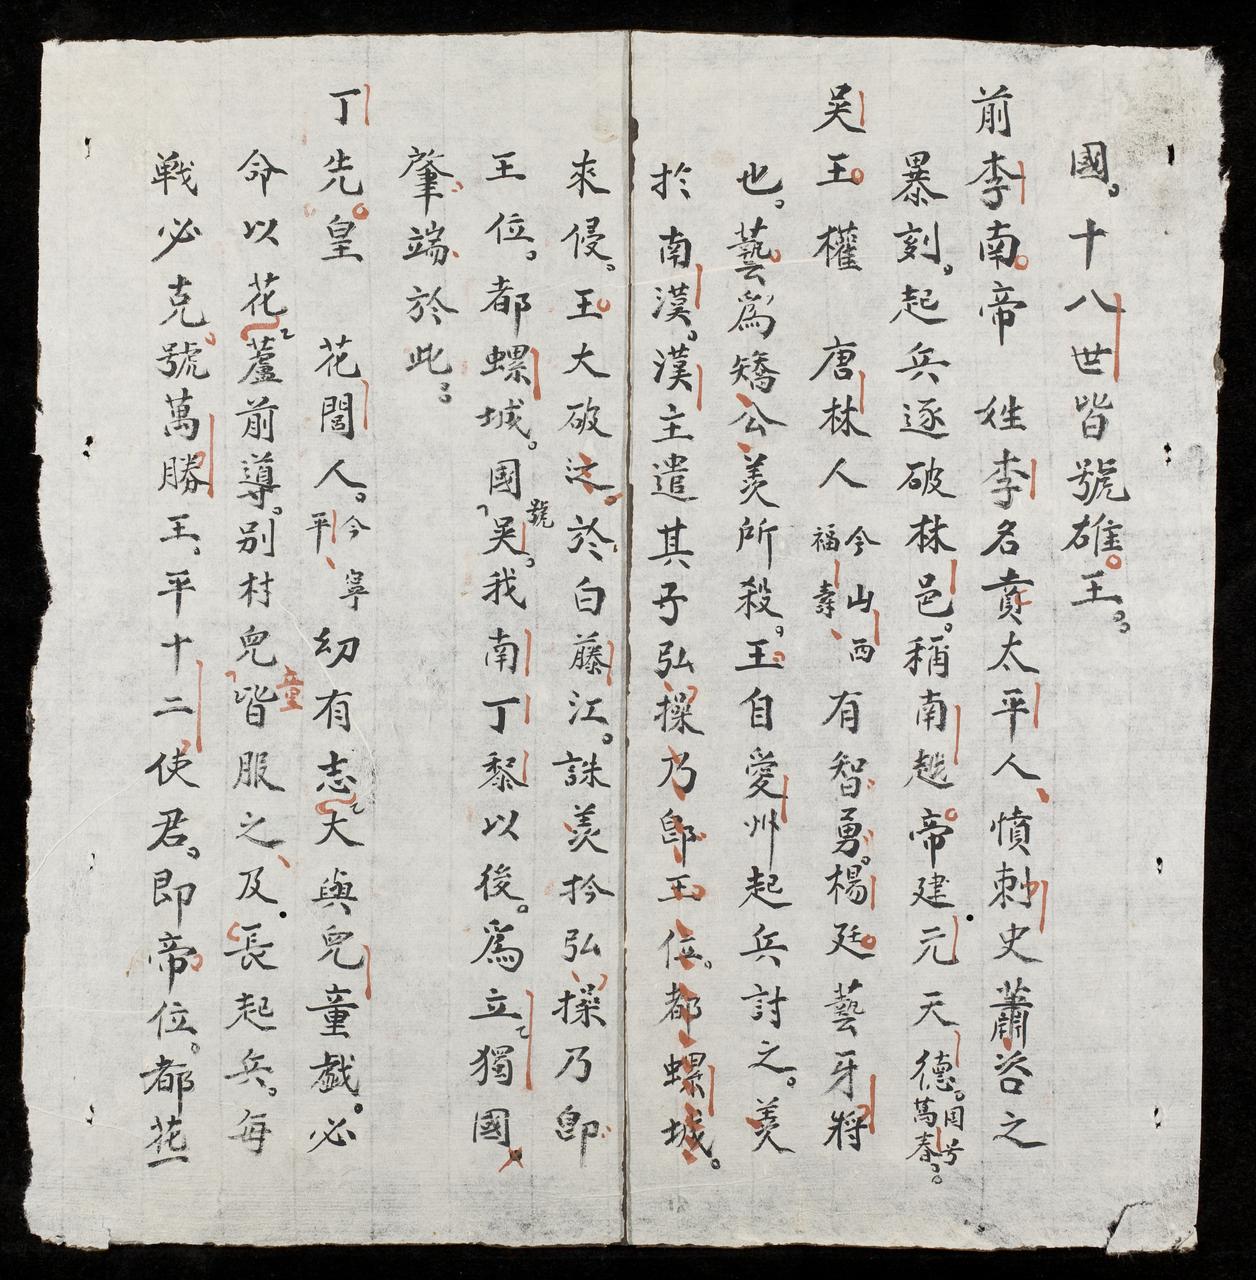 國十八世皆號雄王
前李南帝 姓李名賁太平人憤刺史蕭咨之
暴刻起兵逐破林邑稱南越帝建元天德国号萬春
吳王權 唐林人今山西福壽有智勇楊廷藝牙將
也藝爲矯公羨所殺王自愛州起兵討之羨
於南漢漢主遣其子弘操乃即王位都螺城
來侵王大破之於白藤江誅羨擒弘操乃即
王位都螺城國號吳我南丁黎以後爲立獨國
肇端於此
丁先皇 花閭人今寧平幼有志大與兒童戲必
命以花蘆前導別村兒童皆服之及長起兵每
戰必克號萬勝王平十二使君即帝位都花